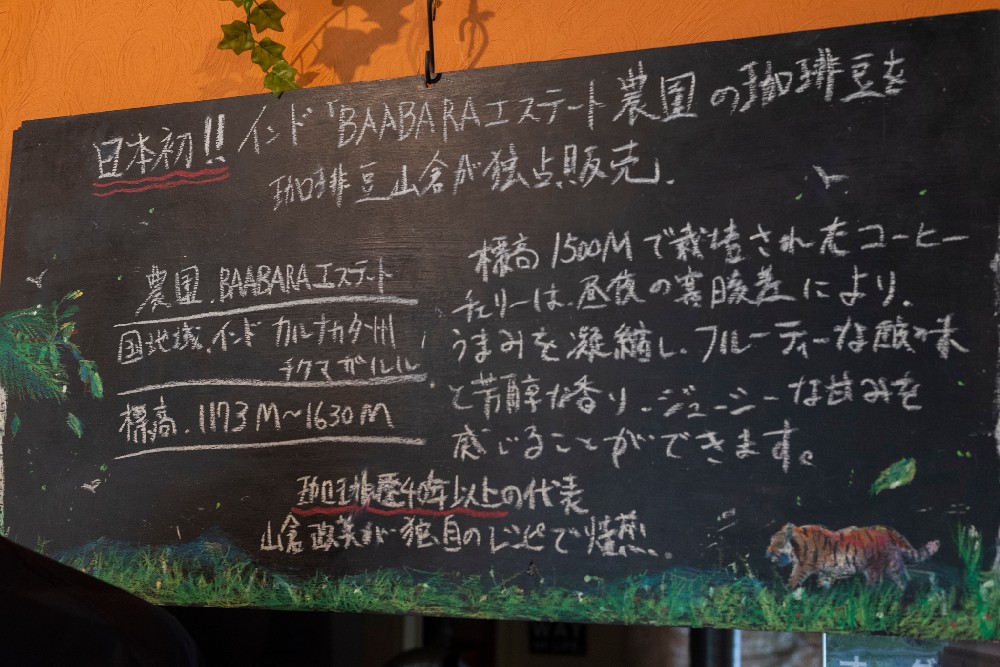 日本初!! インド「BAABARAエステート農園の珈琲豆を
珈琲豆山倉が独占販売.
農園.BAABARAエステート
国地域.インド カルナカタ州
チクマガルル.
標高.1173M~1630M
標高1500Mで栽培されたコーヒー
チェリーは.昼夜の寒暖差により.
うまみを凝縮し.フルーティーな酸味
と芳醇な香り.ジューシーな甘みを
感じることができます。
珈琲歴40年以上の代表
山倉政美が独自のレシピで焙煎.